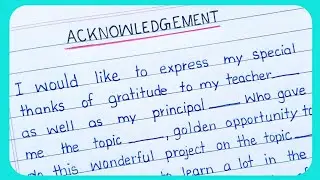 ACKNOWLEDGEMENT
I would like to express my special
thanks of gratitude to my teacher___
as well as my principal___ Who gave
me the topic ___, golden opportunity to
do this wonderful project on the topic___
to learn a lot in the